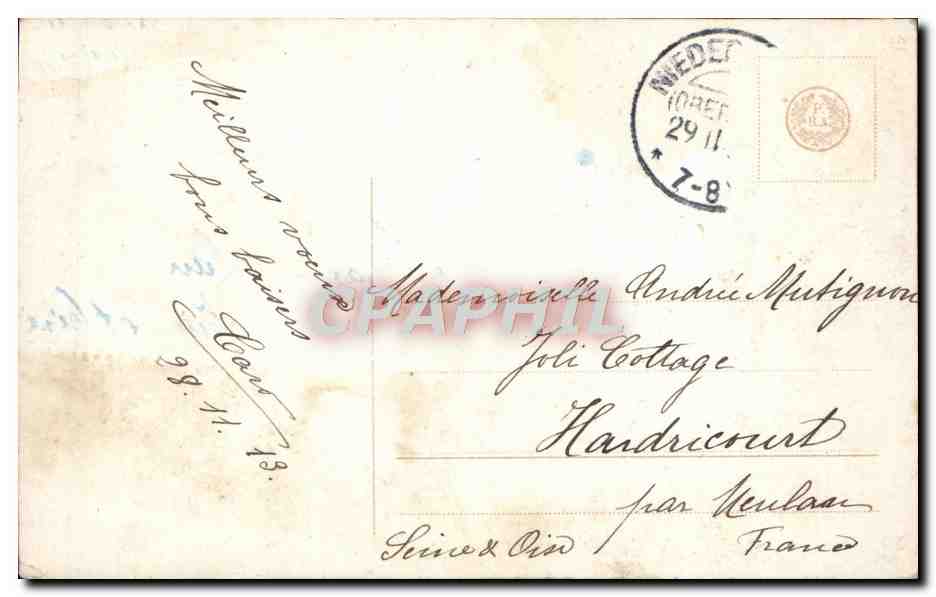 Meilleurs voeux
bons baisers
Caro
28.11.13.
NIEDER
(OBER
29 11.
* 7-8
Mademoiselle Andrée Mutignon
Joli Cottage
Hardricourt
par Meulan
Seine & Oise France
CPAPHIL